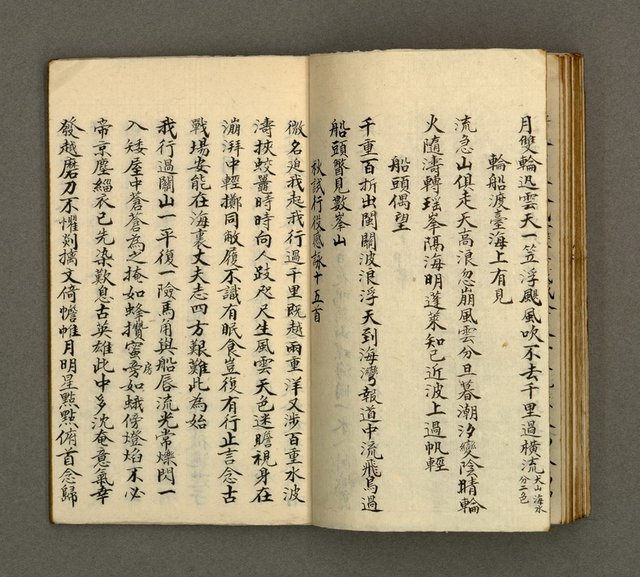 月雙輪迅雲天一笠浮颶風吹不去千里過橫流大山海水分二色
輪船渡臺海上有見
流急山俱走天高浪忽崩風雲分旦暮潮汐變陰晴輪
火隨濤轉瑤峯隔海明蓬萊知已近波上過帆輕
船頭偶望
千重百折出閩關波浪浮天到海灣報道中流飛鳥過
船頭瞥見數峯山
秋試行役感詠十五首
微名迫我起我行過千里既越兩重洋又涉百重水波
濤挾蛟鼉時時向人跂咫尺生風雲天色迷瞻視身在
淜湃中輕擲同敝履不識有眠食豈復有行止言念古
戰場安能在海裏丈夫志四方艱難此為始
我行過關山一平復一險馬角與船唇流光常爍閃一
入矮屋中蒼蒼為之掩如蜂攢蜜房旁如蛾傍燈焰未必
帝京塵緇衣已先染歎息古英雄此中多沈奄意氣幸
發越磨刀不懼剡摛文倚幨帷月明星點點俯首念歸